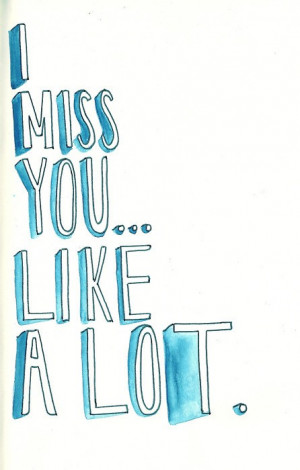 I
MISS
YOU...
LIKE
A LOT.